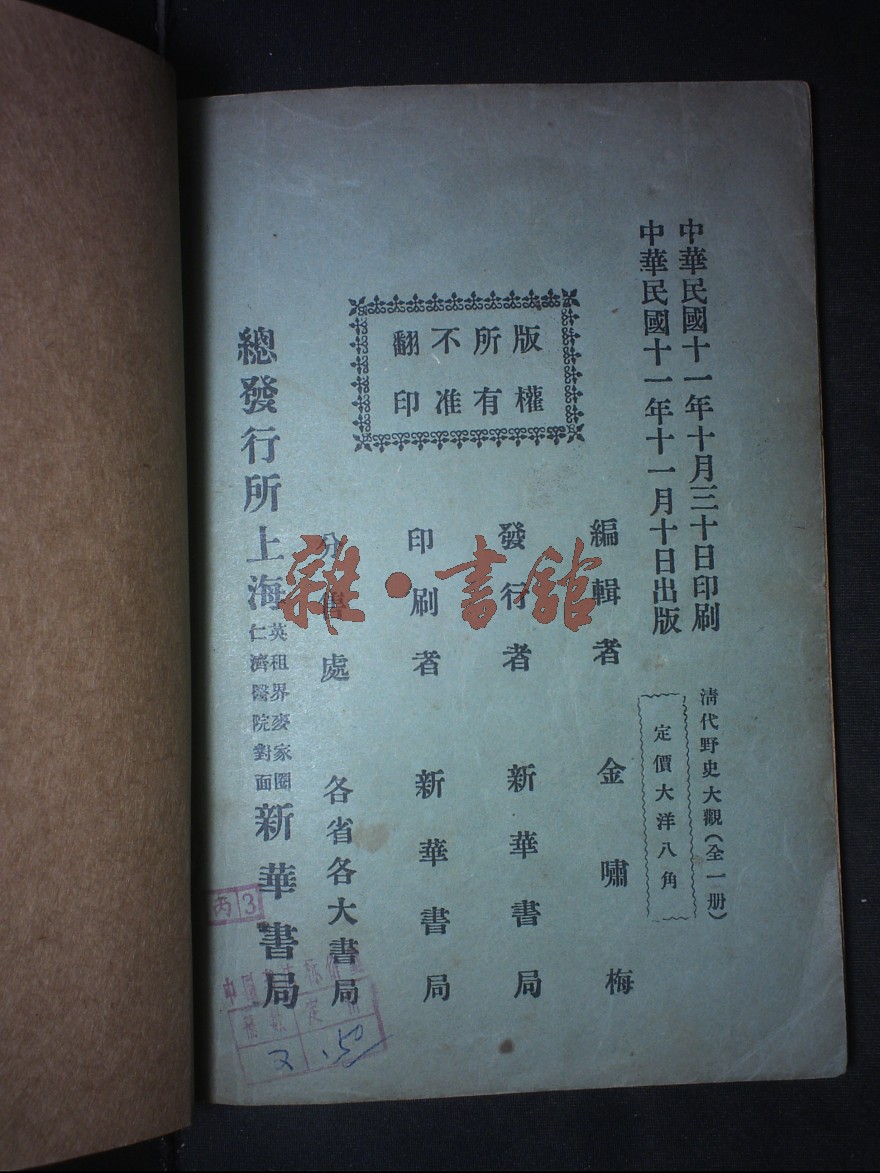 中華民國十一年十月三十日印刷
中華民國十一年十一月十日出版
清代野史大觀(全一册)
定價大洋八角
版權
所有
不准
翻印
編輯者 金嘯梅
發行者 新華書局
印刷者 新華書局
分售處 各省各大書局
總發行所上海英租界麥家圈仁濟醫院對面新華書局
雜·書館
丙 3